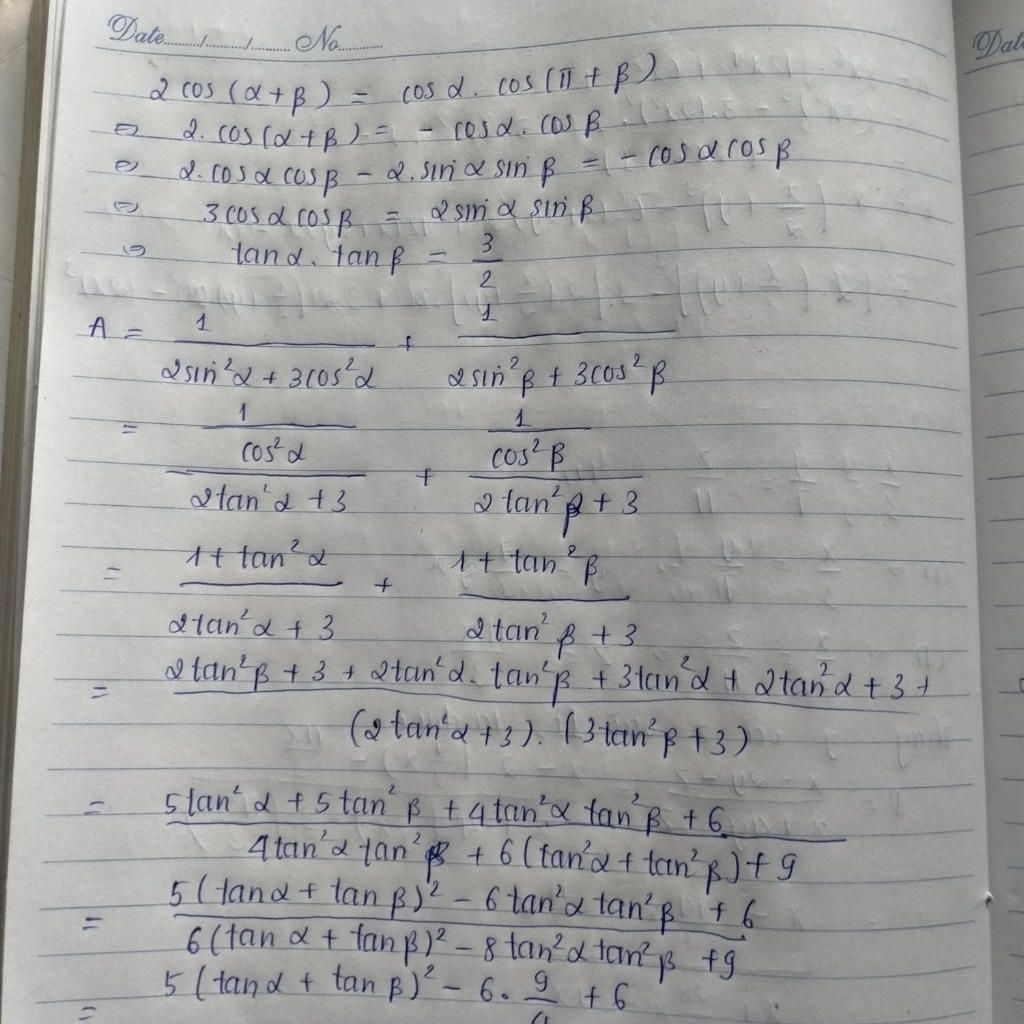 Date......../......../........ No..........
Dat
2 cos (α+β) = cos α . cos (π + β)
⇔ 2. cos (α+β) = - cos α . cos β
⇔ 2. cos α cos β - 2. sin α sin β = - cos α cos β
⇔ 3 cos α cos β = 2 sin α sin β
⇔ tan α . tan β = 3/2
A = 1/(2 sin²α + 3 cos²α) + 1/(2 sin²β + 3 cos²β)
= (1/cos²α)/(2 tan²α + 3) + (1/cos²β)/(2 tan²β + 3)
= (1 + tan²α)/(2 tan²α + 3) + (1 + tan²β)/(2 tan²β + 3)
= (2 tan²β + 3 + 2 tan²α . tan²β + 3 tan²α + 2 tan²α + 3 +)/((2 tan²α + 3) . (3 tan²β + 3))
= (5 tan²α + 5 tan²β + 4 tan²α tan²β + 6)/(4 tan²α tan²β + 6 (tan²α + tan²β) + 9)
= (5 (tan α + tan β)² - 6 tan²α tan²β + 6)/(6 (tan α + tan β)² - 8 tan²α tan²β + 9)
= 5 (tan α + tan β)² - 6 . 9/4 + 6